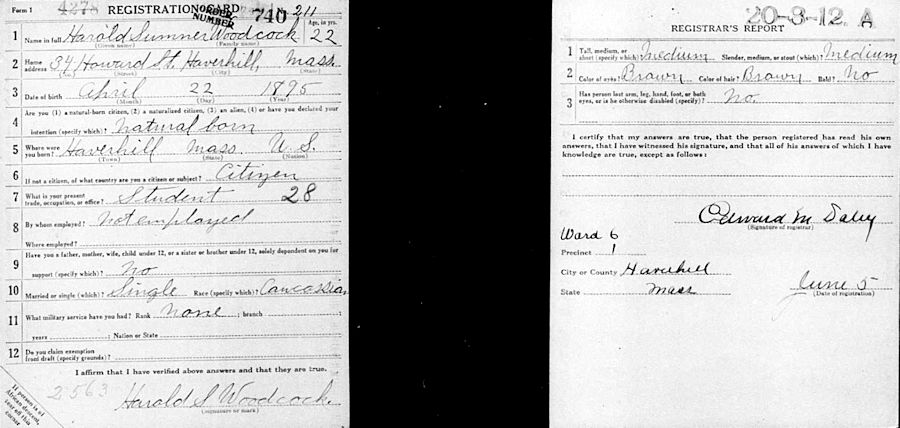 Form 1 4278 REGISTRATION CARD ORDER NUMBER 740 No. 211
1 Name in full Harold Sumner Woodcock Age, in yrs. 22
(Given name) (Family name)
2 Home address 34 Howard St. Haverhill, Mass
(Street) (City) (State)
3 Date of birth April 22 1895
(Month) (Day) (Year)
4 Are you (1) a natural-born citizen, (2) a naturalized citizen, (3) an alien, (4) or have you declared your
intention (specify which)? Natural born
5 Where were you born? Haverhill Mass. U. S.
(Town) (State) (Nation)
6 If not a citizen, of what country are you a citizen or subject? Citizen
7 What is your present trade, occupation, or office? Student 28
8 By whom employed? Not employed
Where employed?
9 Have you a father, mother, wife, child under 12, or a sister or brother under 12, solely dependent on you for
support (specify which)? No
10 Married or single (which)? Single Race (specify which)? Caucassian
11 What military service have you had? Rank None ; branch ;
years ; Nation or State
12 Do you claim exemption from draft (specify grounds)?
I affirm that I have verified above answers and that they are true.
2563
Harold S Woodcock.
(Signature or mark)
If person is of
African descent,
tear off this
corner
20-3-12. A
REGISTRAR'S REPORT
1 Tall, medium, or short (specify which)? Medium Slender, medium, or stout (which)? Medium
2 Color of eyes? Brown Color of hair? Brown Bald? No
3 Has person lost arm, leg, hand, foot, or both
eyes, or is he otherwise disabled (specify)? No.
I certify that my answers are true, that the person registered has read his own
answers, that I have witnessed his signature, and that all of his answers of which I have
knowledge are true, except as follows:
Edward M Daley
(Signature of registrar)
Ward 6
Precinct 1
City or County Haverhill
State Mass
June 5
(Date of registration)